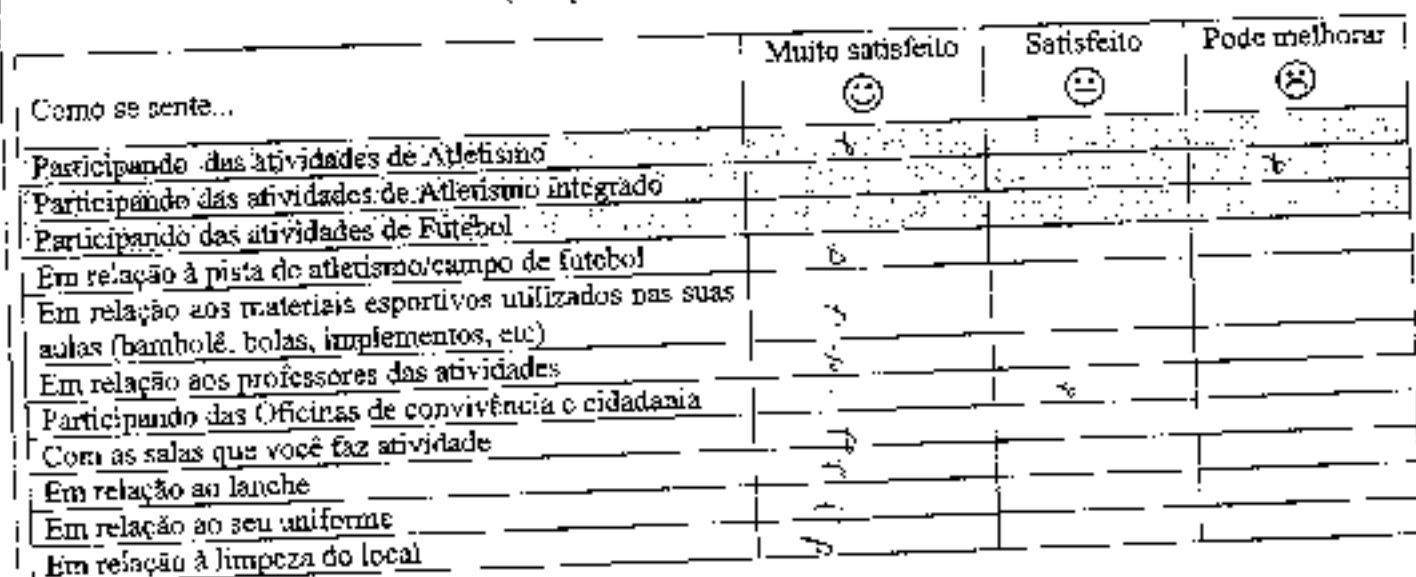 Muito satisfeito Satisfeito Pode melhorar
Como se sente...
Participando das atividades de Atletismo
Participando das atividades de Atletismo integrado
Participando das atividades de Futebol
Em relação à pista de atletismo/campo de futebol
Em relação aos materiais esportivos utilizados nas suas
aulas (bambolê, bolas, implementos, etc)
Em relação aos professores das atividades
Participando das Oficinas de convivência e cidadania
Com as salas que você faz atividade
Em relação ao lanche
Em relação ao seu uniforme
Em relação à limpeza do local